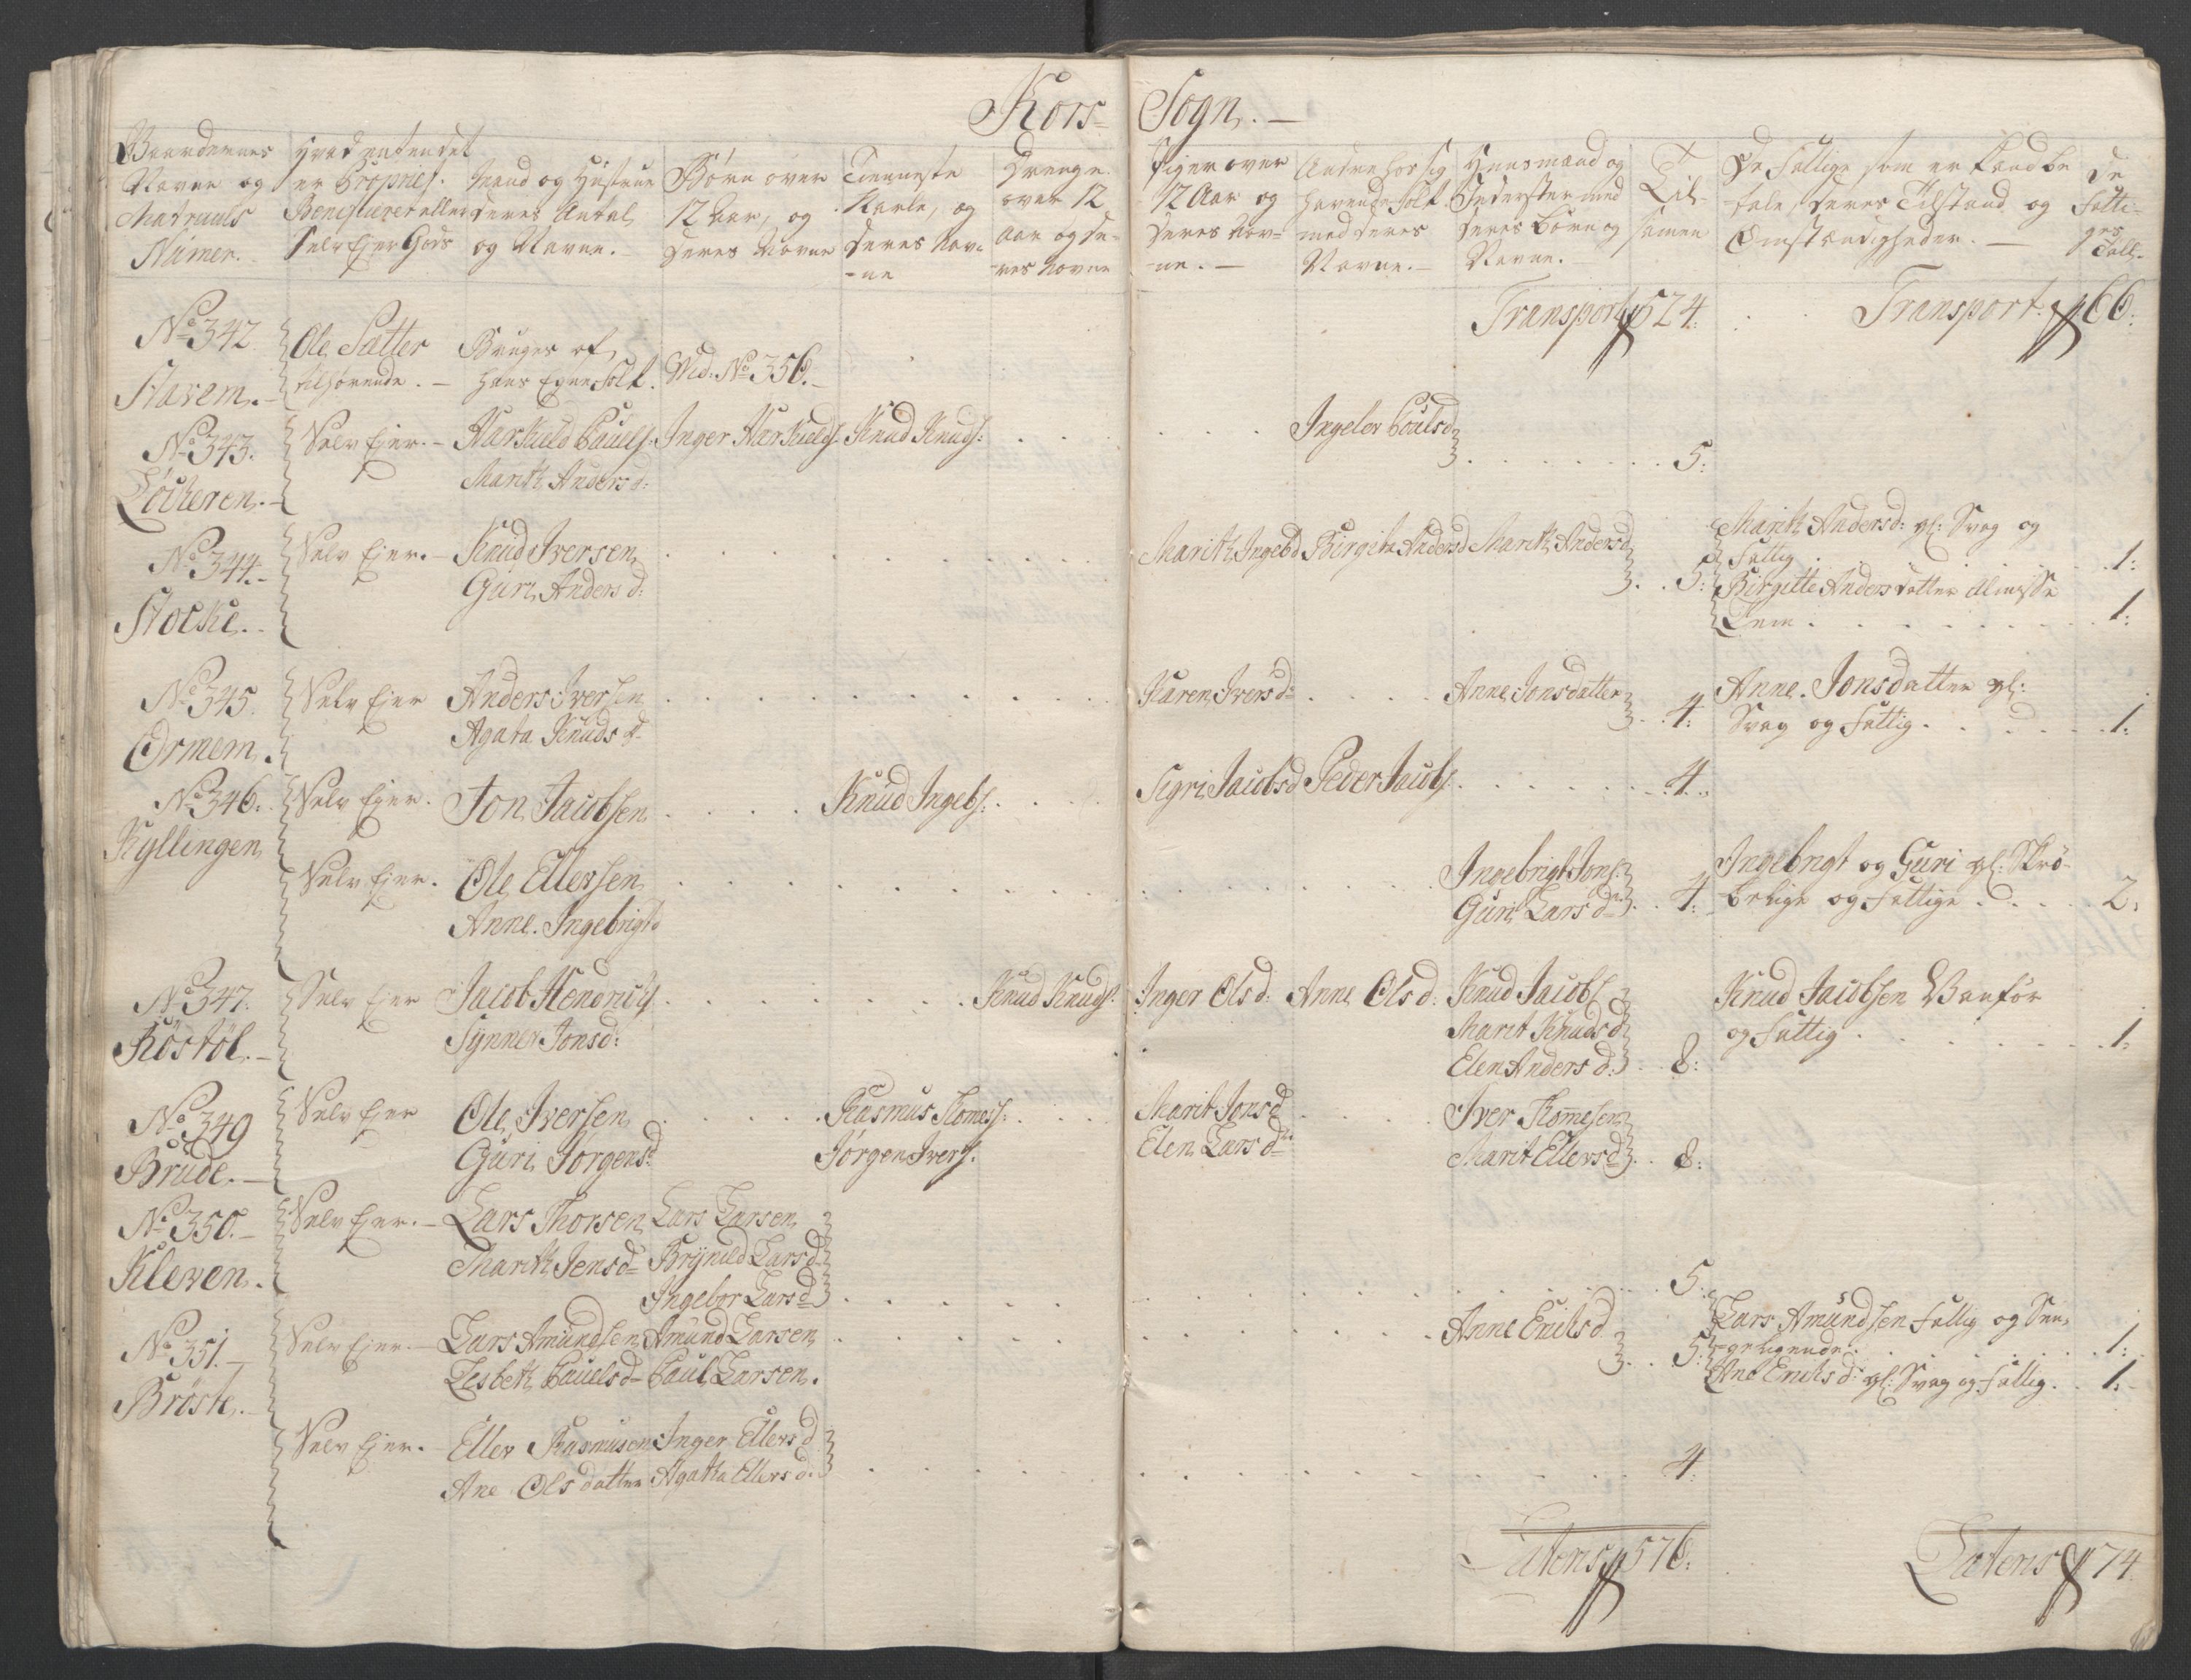 Kors- Sogn.
Gaardernes
Navne og
Matriculs
Numer.
Hvad enten det
er Propriet.
Beneficeret eller
Selv Ejer Gods
Mand og Hustrue
deres Antal
og Navne.
Børn over
12 Aar, og
deres Navne
Tienneste
Karle, og
deres Nav-
-ne
Drenge
over 12
Aar og de-
-res Navne
Piger over
12 Aar og
deres Nav-
-ne.
Andre hos sig
havende Folk
med deres
Navne.
Huusmænd og
Inderster med
deres Børn og
Navne.
Til-
samen
De Fattige som er Kand be
tale, deres Tilstand og
Omstændigheder.
De
Fatti-
ges
Tall.
Transport 524.
Transport. 66.
No 342
Stavem.
Ole Sætter
tilhørende.
Bruges af
hans Egne Folk.
Vid. No 356.
No 343.
Löckeren.
Selv Ejer.
Harkield Pauels:
Marith Andersd:
Inger Harkields.
Knud Knuds:
Ingelev Poulsd
5:
No 344.
Stocke.
Selv Ejer.
Knud Iversen
Guri Andersd:
Marith Ingebd
Birgita Andersd
Marith Andersd
5:
Marith Andersd: gl: Svag og
Fattig 1:
Birgitte Andersdatter Almisse
Lem. 1:
No 345.
Ormem.
Selv Ejer
Anders Iversen
Agata Knudsd
Karen Iversd
Anne Jonsdatter
4:
Anne Jonsdatter gl:
Svag og Fattig. 1:
No 346.
Kyllingen
Selv Ejer.
Jon Jacobsen
Knud Ingebs:
Sigri Jacobsd
Peder Jacobs.
4.
Selv Ejer.
Ole Ellersen
Anne Ingebrigtsd
Ingebrigt Jons:
Guri Larsd
4:
Ingebrigt og Guri gl: Skrø-
belige og Fattige 2.
No 347.
Köstöl.
Selv Ejer
Jacob Hendrichs
Synnev Jonsd:
Knud Knuds:
Inger Olsd:
Anne Olsd:
Knud Jacobs
Marit Knudsd
Elen Andersd:
8:
Knud Jacobsen Vanfør
og Fattig. 1:
No 349
Brude.
Selv Ejer
Ole Iversen
Guri Jörgensd
Rasmus Tomass:
Jörgen Ivers:
Marit Jonsd
Elen Larsd
Iver Thomesen
Marit Ellersd
8:
No 350.
Kleven.
Selv Ejer.
Lars Thorsen
Marith Jensd
Lars Larsen
Brynild Larsd
Ingebor Larsd
5.
No 351.
Bröste.
Selv Ejer.
Lars Amundsen
Lisbeth Pauelsd
Amund Larsen
Paul Larsen.
Anne Erichsd
5:
Lars Amundsen Fattig og Sen-
geligende. 1:
Ane Erichsd: gl: Svag og Fattig. 1:
Selv Ejer.
Eller Rasmusen
Ane Olsdatter
Inger Ellersd
Agatha Ellersd:
4:
Latens 576:
Latens 74